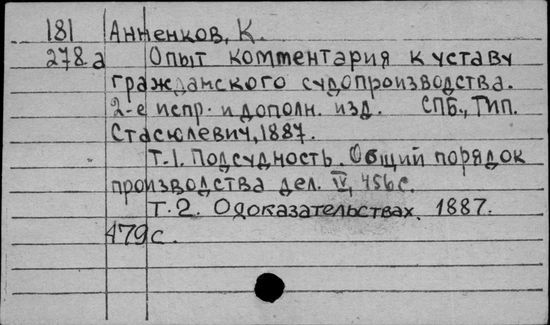 181 Анненков, К.
278.а Опыт комментария к уставу
гражданского судопроизводства.
2-е испр. и дополн. изд. СПБ., Тип.
Стасюлевич, 1887.
Т.1. Подсудность. Общий порядок
производства дел. IV, 456 с.
Т. 2. О доказательствах. 1887.
479 с.